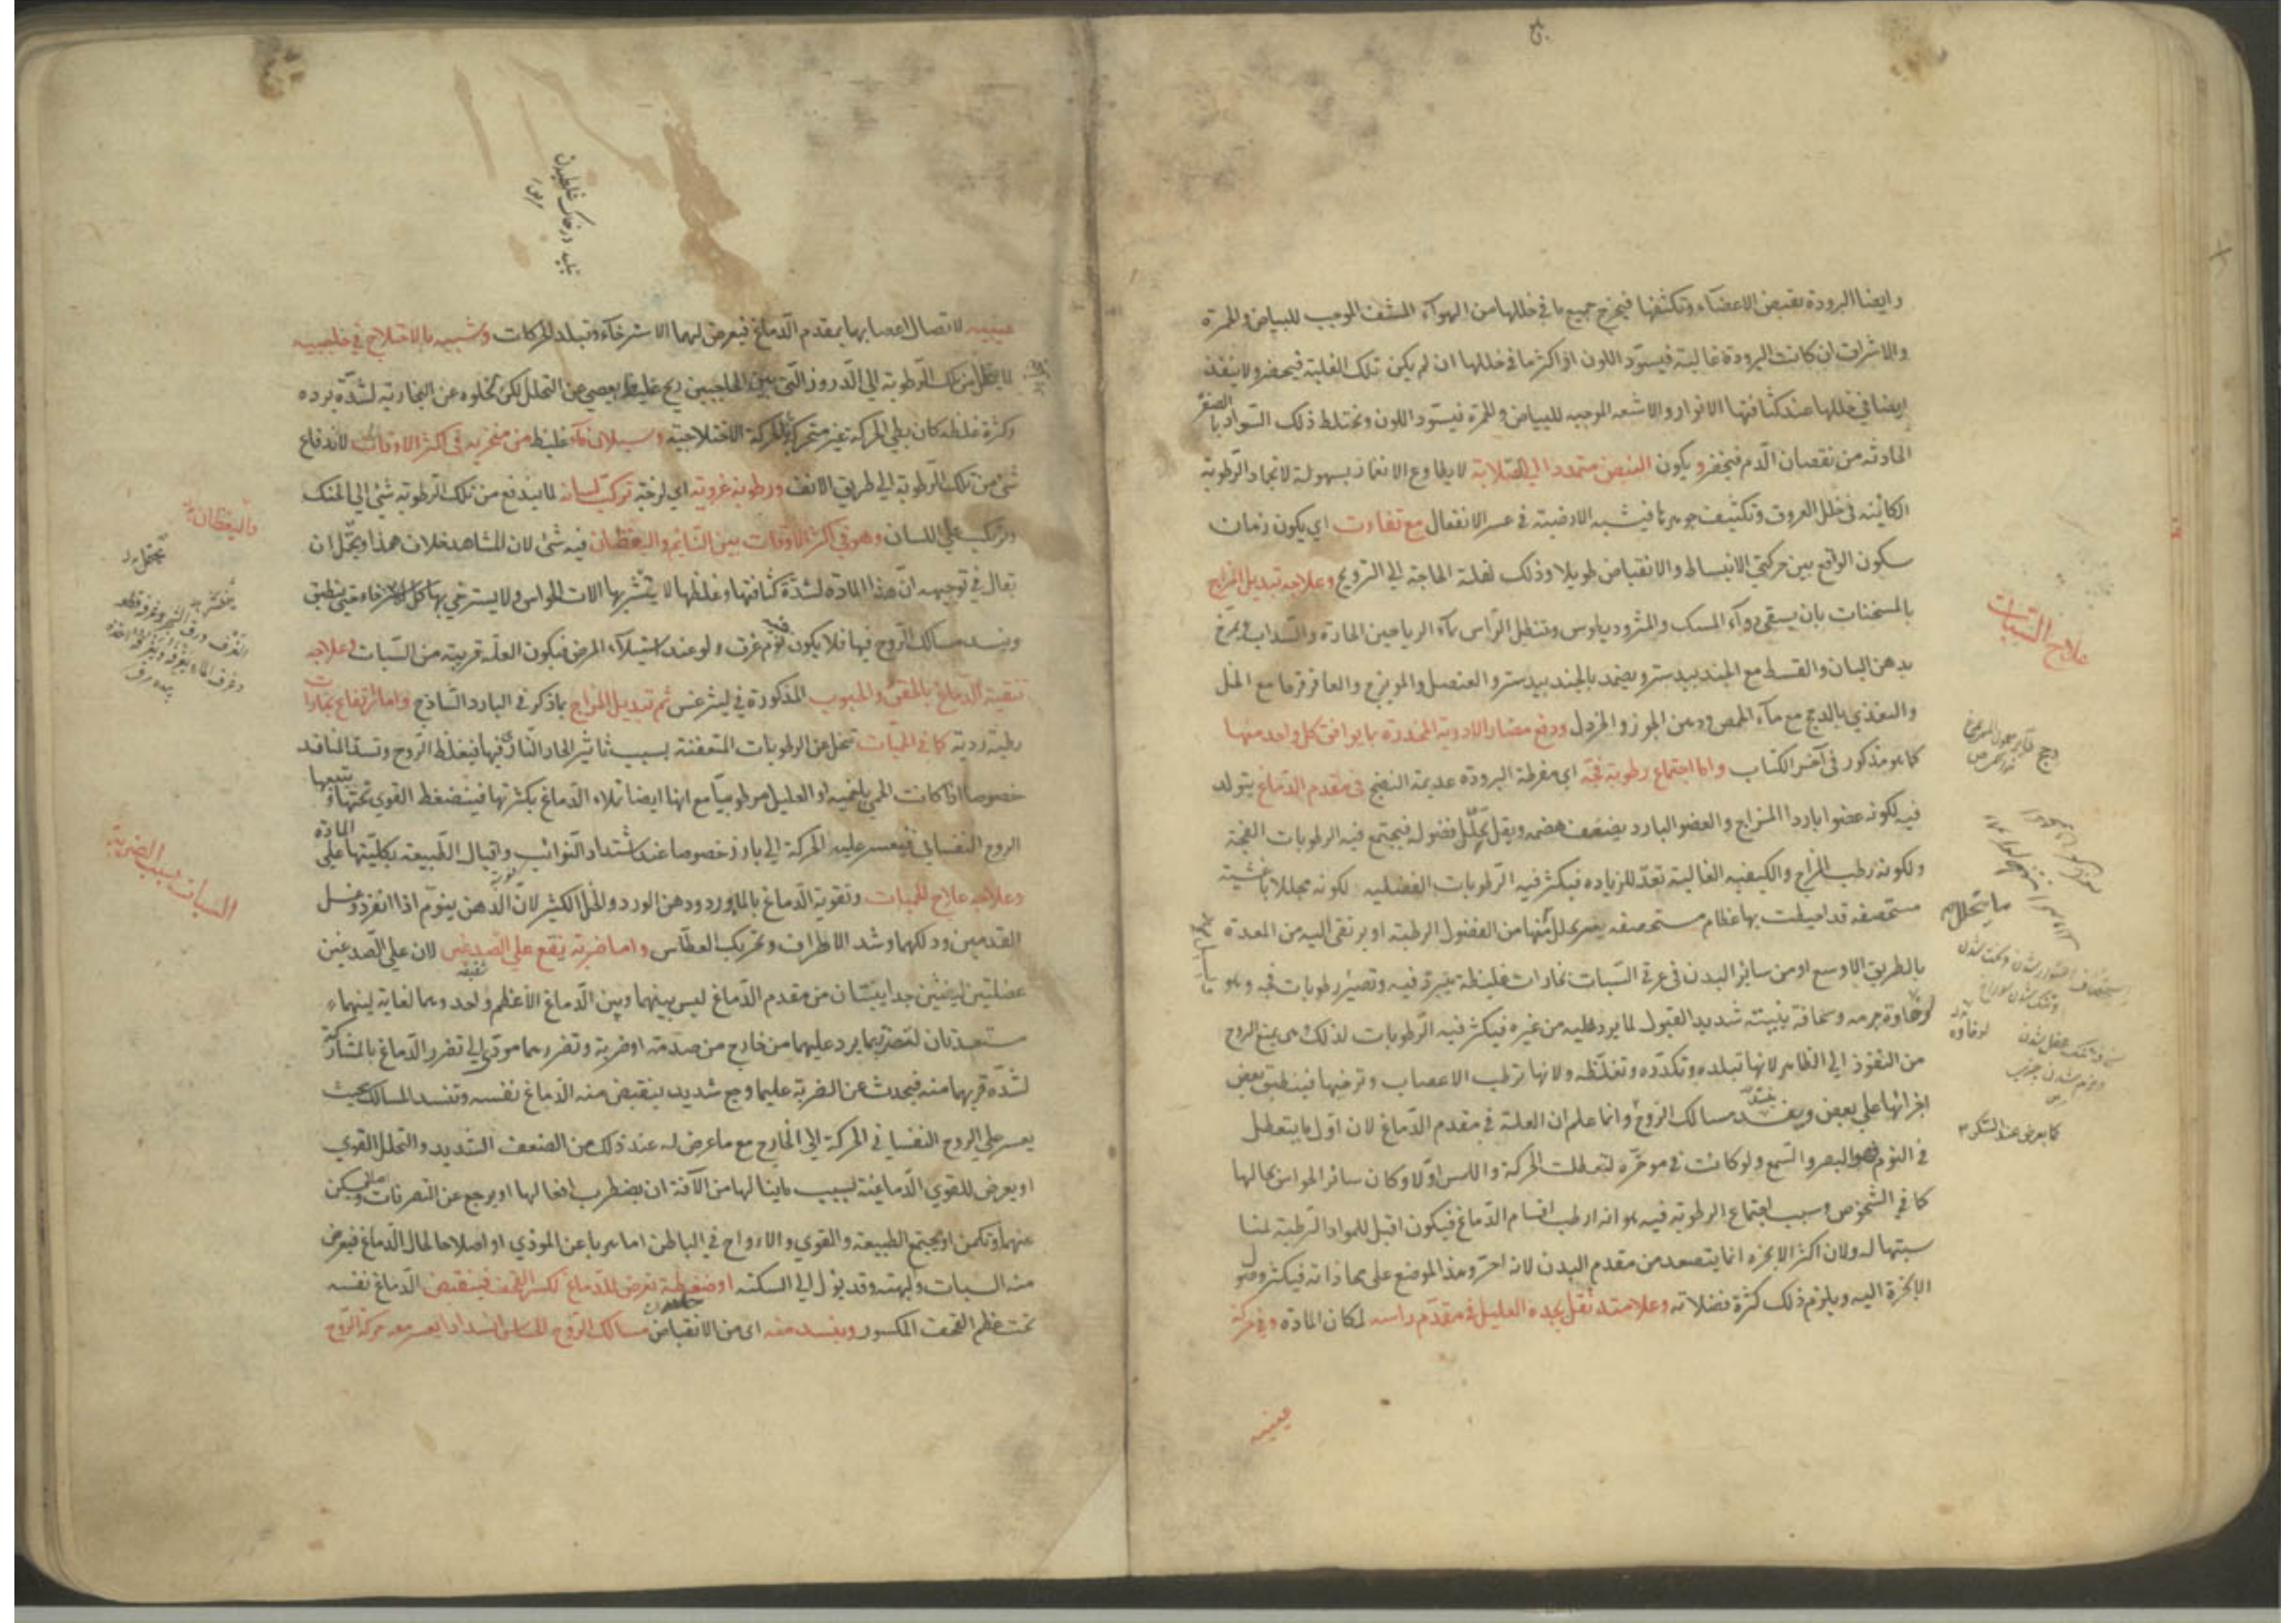 وايضا البرودة تقبض الاعضاء وتكثفها فيخرج جميع ما في خللها من الهواء المشف الموجب للبياض والحمرة
والاشراق ان كانت البرودة غالبة فيسود اللون او اكثر ما في خللها ان لم يكن تلك الغلبة فيخضر ولا ينفذ
ايضا في خللها عند كثافتها الانوار والاشعة الموجبة للبياض والحمرة فيسود اللون ويختلط ذلك السواد بالصفرة
الحادثة من نقصان الدم فيخضر ويكون النبض متمددا الي الصلابة لا يطاوع الانغماز بسهولة لانجماد الرطوبة
الكائنة في خلل العروق وتكثيف جوهرها فيشبه الارضية في عسر الانفعال مع تفاوت اي يكون زمان
سكون الواقع بين حركتي الانبساط والانقباض طويلا وذلك لقلة الحاجة الي الترويح وعلاجه تبديل المزاج
بالمسخنات بان يسقي دواء المسك والمثروديطوس وتنطيل الراس بماء الرياحين الحارة والسداب ويمرخ
بدهن البان والقسط مع الجندبيدستر ويضمد بالجندبيدستر والعنصل والمويزج والعاقرقرحا مع الخل
والتغذي بالدج مع ماء الحمص ودهن الجوز والخردل ودفع مضار الادوية المخدرة بما يوافق كل واحد منها
كما هو مذكور في آخر الكتاب واما اجتماع رطوبة فجة اي مفرطة البرودة عديمة النضج في مقدم الدماغ يتولد
فيه لكونه عضوا باردا المزاج والعضو البارد يضعف هضمه ويقل تحلل فضوله فيجتمع فيه الرطوبات الفجة
ولكونه رطب المزاج والكيفية الغالبة تعد للزيادة فيكثر فيه الرطوبات الفضلية لكونه مجللا باغشية
مستحصفة قد احيطت بها عظام مستحصفة يعسر تحلل منها من الفضول الرطبة او يرتقي اليه من المعدة
بالطريق الاوسع او من سائر البدن في عرق السبات بخارات غليظة يتبرد فيه وتصير رطوبات فجة وهو
لرخاوة جرمه وسخافة بنيته شديد القبول لما يرد عليه من غيره فيكثر فيه الرطوبات لذلك وهي يمنع الروح
من النفوذ الي الظاهر لانها تبلده وتكدره وتغلظه ولانها ترطب الاعصاب وترخيها فينطبق بعض
اجزائها علي بعض وينسد مسالك الروح وانما علم ان العلة في مقدم الدماغ لان اول ما يتعطل
في النوم هو البصر والسمع ولو كانت في موخره لتعطلت الحركة واللمس اولا وكان سائر الحواس بحالها
كما في الشخوص وسبب اجتماع الرطوبة فيه هو انه ارطب اقسام الدماغ فيكون اقبل للمواد الرطبة لمنا
سبتها له ولان اكثر الابخرة انما يتصعد من مقدم البدن لانه احر وهذا الموضع علي محاذاته فيكثر وصول
الابخرة اليه ويلزم ذلك كثرة فضلاته وعلامته ثقل يجده العليل في مقدم راسه لمكان المادة وفي حركة
عينيه
علاج السبات
ما يتحلل
لرخاوة
كما يعرض عند السكر
عينيه لاتصال اعصابها بمقدم الدماغ فيعرض لهما الاسترخاء وتبلد الحركات وشبيه بالاختلاج في حاجبيه
لما يتحلل من تلك الرطوبة الي الدروز التي بين الحاجبين ريح غليظ يعصي عن التحلل لكن لخلوه عن البخارية لشدة برده
وكثرة غلظه كان بطي الحركة غير متحرك كالحركة الاختلاجية وسيلان ماء غليظ من منخريه في اكثر الاوقات لاندفاع
شئ من تلك الرطوبة الي طريق الانف ورطوبة غروية اي لزجة تركب لسانه لما يندفع من تلك الرطوبة شئ الي الحنك
ويتركب علي اللسان وهو في اكثر الاوقات بين النائم واليقظان فيه شئ لان المشاهد خلاف هذا ويمكن ان
يقال في توجيهه ان هذا المادة لشدة كثافتها وغلظها لا يتشربها الات الحواس ولا يسترخي بها كل الاسترخاء حتي ينطبق
وينسد مسالك الروح فيها فلا يكون نوم غرق ولو عند استيلاء المرض فيكون العلة قريبة من السبات وعلاجه
تنقية الدماغ بالحقن والحبوب المذكورة في ليثرغس ثم تبديل المزاج بما ذكر في البارد الساذج واما ارتفاع بخارات
رطبة ردية كما في الحميات تتحلل عن الرطوبات المتعفنة بسبب تاثير الحار الناري فيها فيغلظ الروح وتسد المنافذ
خصوصا اذا كانت الحمي بلغمية او العليل مرطوبيا مع انها ايضا تملاء الدماغ بكثرتها فينضغط القوي تحتها ويتبعها
الروح النفساني فيعسر عليه الحركة الي بارز خصوصا عند اشتداد النوائب واقبال الطبيعة بكليتها علي المادة
وعلاجه علاج الحميات وتقوية الدماغ بالماورد ودهن الورد والخل الكثير لان الدهن ينوم اذا انفرد وغسل
القدمين ودلكهما وشد الاطراف وتحريك العطاس واما ضربة يقع علي الصدغين لان علي الصدغين
عضلتين لينتين جدا ينبتان من مقدم الدماغ ليس بينهما وبين الدماغ الا عظم واحد وهما لغاية لينهما
مستعدتان لتضر بما يرد عليهما من خارج من صدمة او ضربة وتضررهما مودي الي تضرر الدماغ بالمشاركة
لشدة قربهما منه فيحدث عن الضربة عليهما وجع شديد ينقبض منه الدماغ نفسه وتنسد المسالك بحيث
يعسر علي الروح النفساني الحركة الي الخارج مع ما عرض له عند ذلك من الضعف الشديد والتحلل القوي
او يعرض للقوي الدماغية بسبب ما ينالها من الآفة ان يضطرب افعالها او يرجع عن التصرفات
عنها وتكمن او يجتمع الطبيعة والقوي والارواح في الباطن اما هربا عن الموذي او اصلاحا لحال الدماغ فيعرض
منه السبات والبهتة وقد يؤل الي السكتة او ضغطة تعرض للدماغ لكسر القحف فينقبض الدماغ نفسه
تحت عظم القحف المكسور وينسد منه اي من الانقباض مسالك الروح الحساس انسدادا يعسر معه حركة الروح
واليقظان
السبات بسبب الضربة